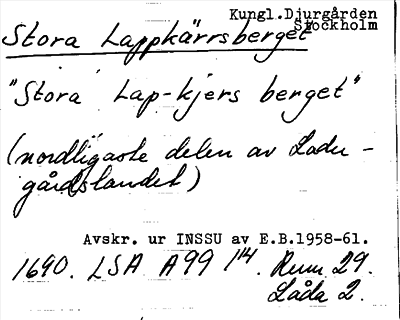 Kungl.Djurgården
Stockholm
Stora Lappkärrsberget
"Stora Lap-kjers berget"
(nordligaste delen av Ladu-
gårdslandet)
Avskr. ur INSSU av E.B.1958-61.
1690. LSA A99 1/4. Rum 29.
Låda 2.